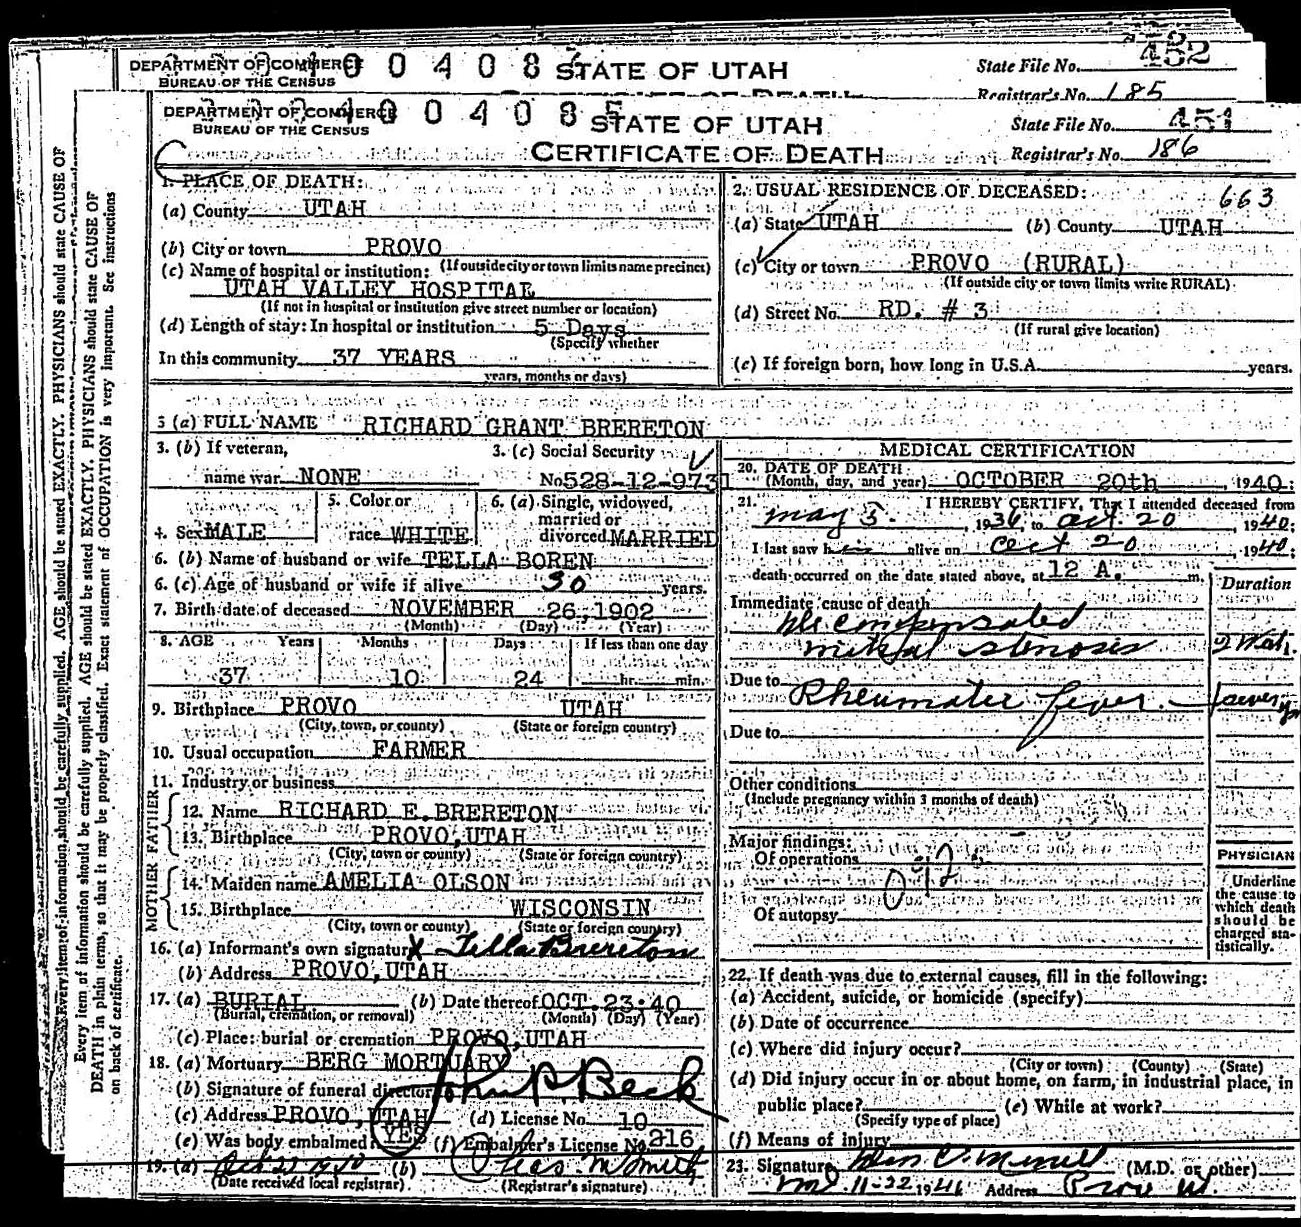 DEPARTMENT OF COMMERCE
BUREAU OF THE CENSUS
STATE OF UTAH
State File No. 452
Registrar's No. 185
DEPARTMENT OF COMMERCE
BUREAU OF THE CENSUS
STATE OF UTAH
CERTIFICATE OF DEATH
State File No. 451
Registrar's No. 186
Every item of information should be carefully supplied. AGE should be stated EXACTLY. PHYSICIANS should state CAUSE OF
Every item of information should be carefully supplied. AGE should be stated EXACTLY. PHYSICIANS should state CAUSE OF
DEATH in plain terms, so that it may be properly classified. Exact statement of OCCUPATION is very important. See instructions
on back of certificate.
1. PLACE OF DEATH:
(a) County UTAH
(b) City or town PROVO
(If outside city or town limits name precinct)
(c) Name of hospital or institution:
UTAH VALLEY HOSPITAL
(If not in hospital or institution give street number or location)
(d) Length of stay: In hospital or institution 5 Days
(Specify whether
In this community 37 YEARS
years, months or days)
2. USUAL RESIDENCE OF DECEASED: 663
(a) State UTAH (b) County UTAH
(c) City or town PROVO (RURAL)
(If outside city or town limits write RURAL)
(d) Street No. RD. # 3
(If rural give location)
(e) If foreign born, how long in U.S.A. years.
3 (a) FULL NAME RICHARD GRANT BRERETON
3. (b) If veteran,
name war NONE
3. (c) Social Security
No. 528-12-9731
4. Sex MALE
5. Color or
race WHITE
6. (a) Single, widowed,
married or
divorced MARRIED
6. (b) Name of husband or wife TELLA BOREN
6. (c) Age of husband or wife if alive 30 years.
7. Birth date of deceased NOVEMBER 26, 1902
(Month) (Day) (Year)
8. AGE Years Months Days If less than one day
37 10 24 hr. min.
9. Birthplace PROVO UTAH
(City, town, or county) (State or foreign country)
10. Usual occupation FARMER
11. Industry or business
FATHER
12. Name RICHARD E. BRERETON
13. Birthplace PROVO, UTAH
(City, town or county) (State or foreign country)
MOTHER
14. Maiden name AMELIA OLSON
15. Birthplace WISCONSIN
(City, town or county) (State or foreign country)
16. (a) Informant's own signature X Tella Brereton
(b) Address PROVO, UTAH
17. (a) BURIAL (b) Date thereof OCT. 23:40
(Burial, cremation, or removal) (Month) (Day) (Year)
(c) Place: burial or cremation PROVO, UTAH
18. (a) Mortuary BERG MORTUARY
(b) Signature of funeral director
(c) Address PROVO, UTAH (d) License No. 10
(e) Was body embalmed? YES (f) Embalmer's License No. 216
19. (a) (b) Chas. M Smith
(Date received local registrar) (Registrar's signature)
MEDICAL CERTIFICATION
20. DATE OF DEATH
(Month, day, and year) OCTOBER 20th, 1940:
21. I HEREBY CERTIFY, That I attended deceased from
May 5, 1936, to Oct. 20 1940:
I last saw him alive on Oct 20, 1940;
death occurred on the date stated above, at 12 A. m.
Duration
Immediate cause of death
Decompensated
mitral stenosis 2 Wks.
Due to Rheumatic fever
Due to
Other conditions
(Include pregnancy within 3 months of death)
Major findings:
Of operations
Of autopsy
PHYSICIAN
Underline
the cause to
which death
should be
charged sta-
tistically.
22. If death was due to external causes, fill in the following:
(a) Accident, suicide, or homicide (specify)
(b) Date of occurrence
(c) Where did injury occur?
(City or town) (County) (State)
(d) Did injury occur in or about home, on farm, in industrial place, in
public place? (e) While at work?
(Specify type of place)
(f) Means of injury
23. Signature (M.D. or other)
Address